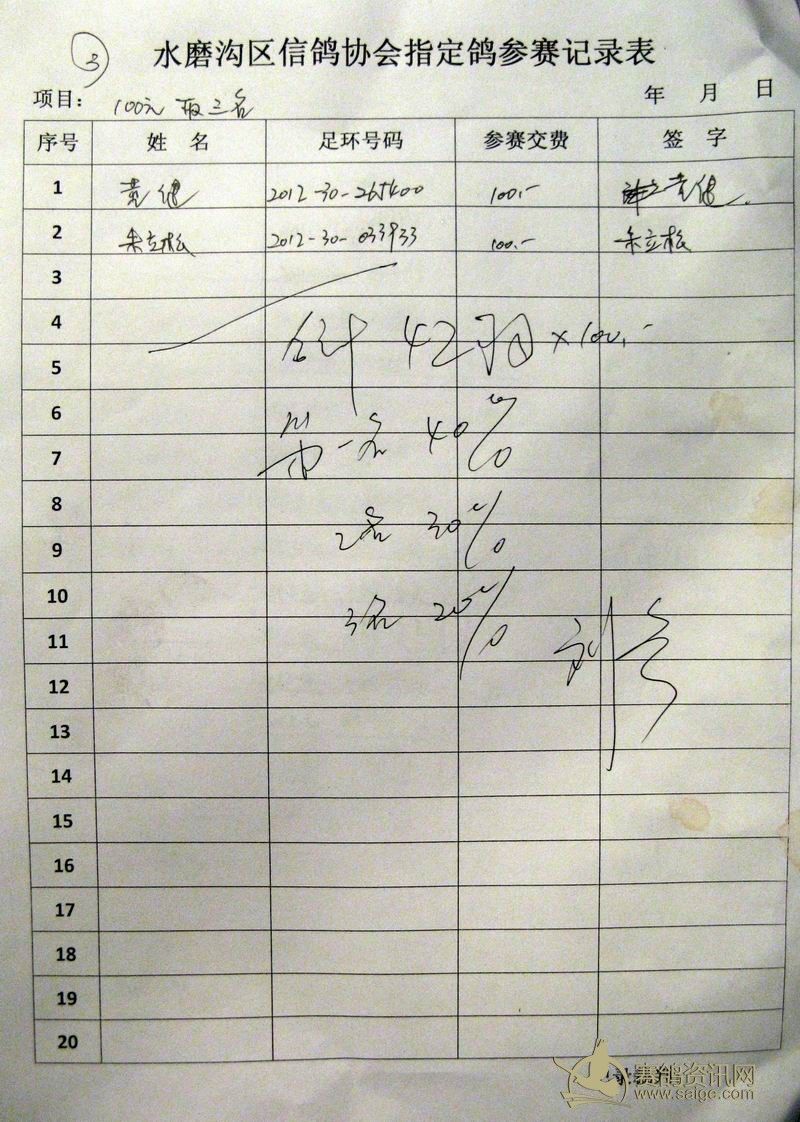 3
水磨沟区信鸽协会指定鸽参赛记录表
项目: 100元 取三名 年 月 日
序号 姓 名 足环号码 参赛交费 签 字
1 袁健 2012-30-265400 100.- 袁健
2 朱立松 2012-30-033933 100.- 朱立松
3
4
合计 42羽×100.-
5
6
第一名 40%
7
8
2名 30%
9
10
3名 20%
11
12
13
14
15
16
17
18
19
20
赛鸽资讯网
www.saige.com